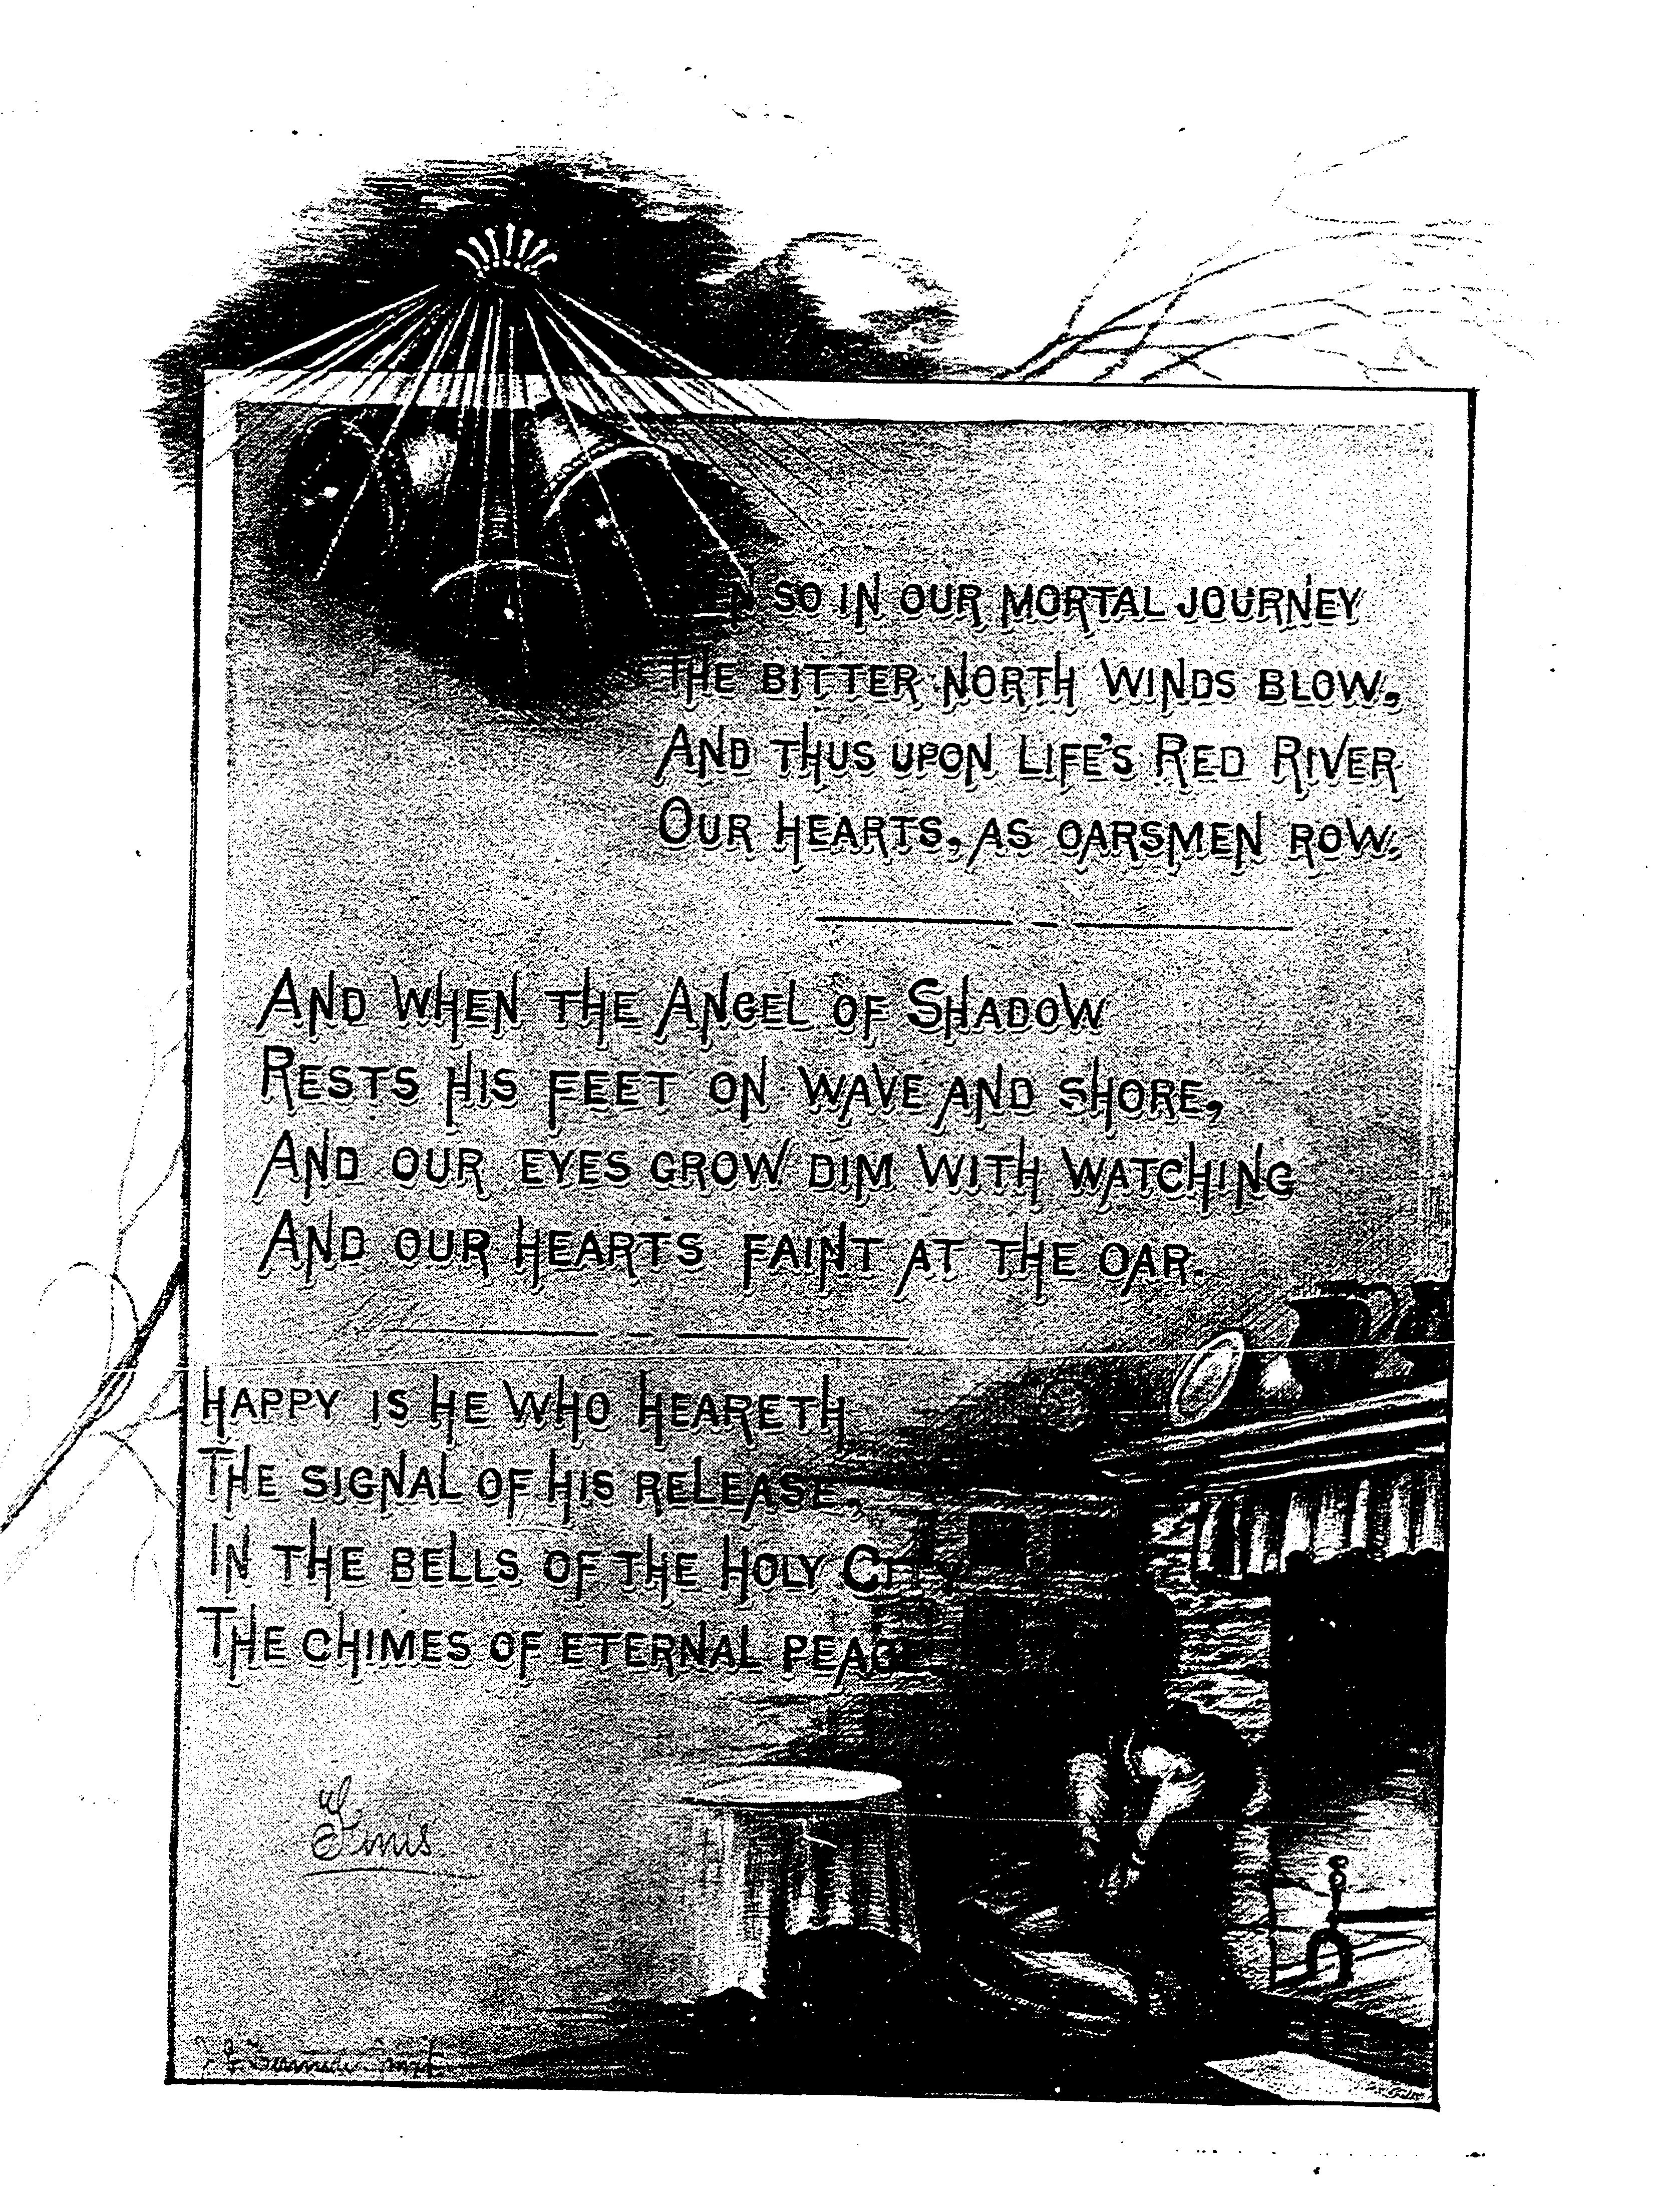 SO IN OUR MORTAL JOURNEY
THE BITTER NORTH WINDS BLOW,
AND THUS UPON LIFE'S RED RIVER
OUR HEARTS, AS OARSMEN ROW.
AND WHEN THE ANGEL OF SHADOW
RESTS HIS FEET ON WAVE AND SHORE,
AND OUR EYES GROW DIM WITH WATCHING
AND OUR HEARTS FAINT AT THE OAR.
HAPPY IS HE WHO HEARETH
THE SIGNAL OF HIS RELEASE,
IN THE BELLS OF THE HOLY CITY
THE CHIMES OF ETERNAL PEACE
Finis